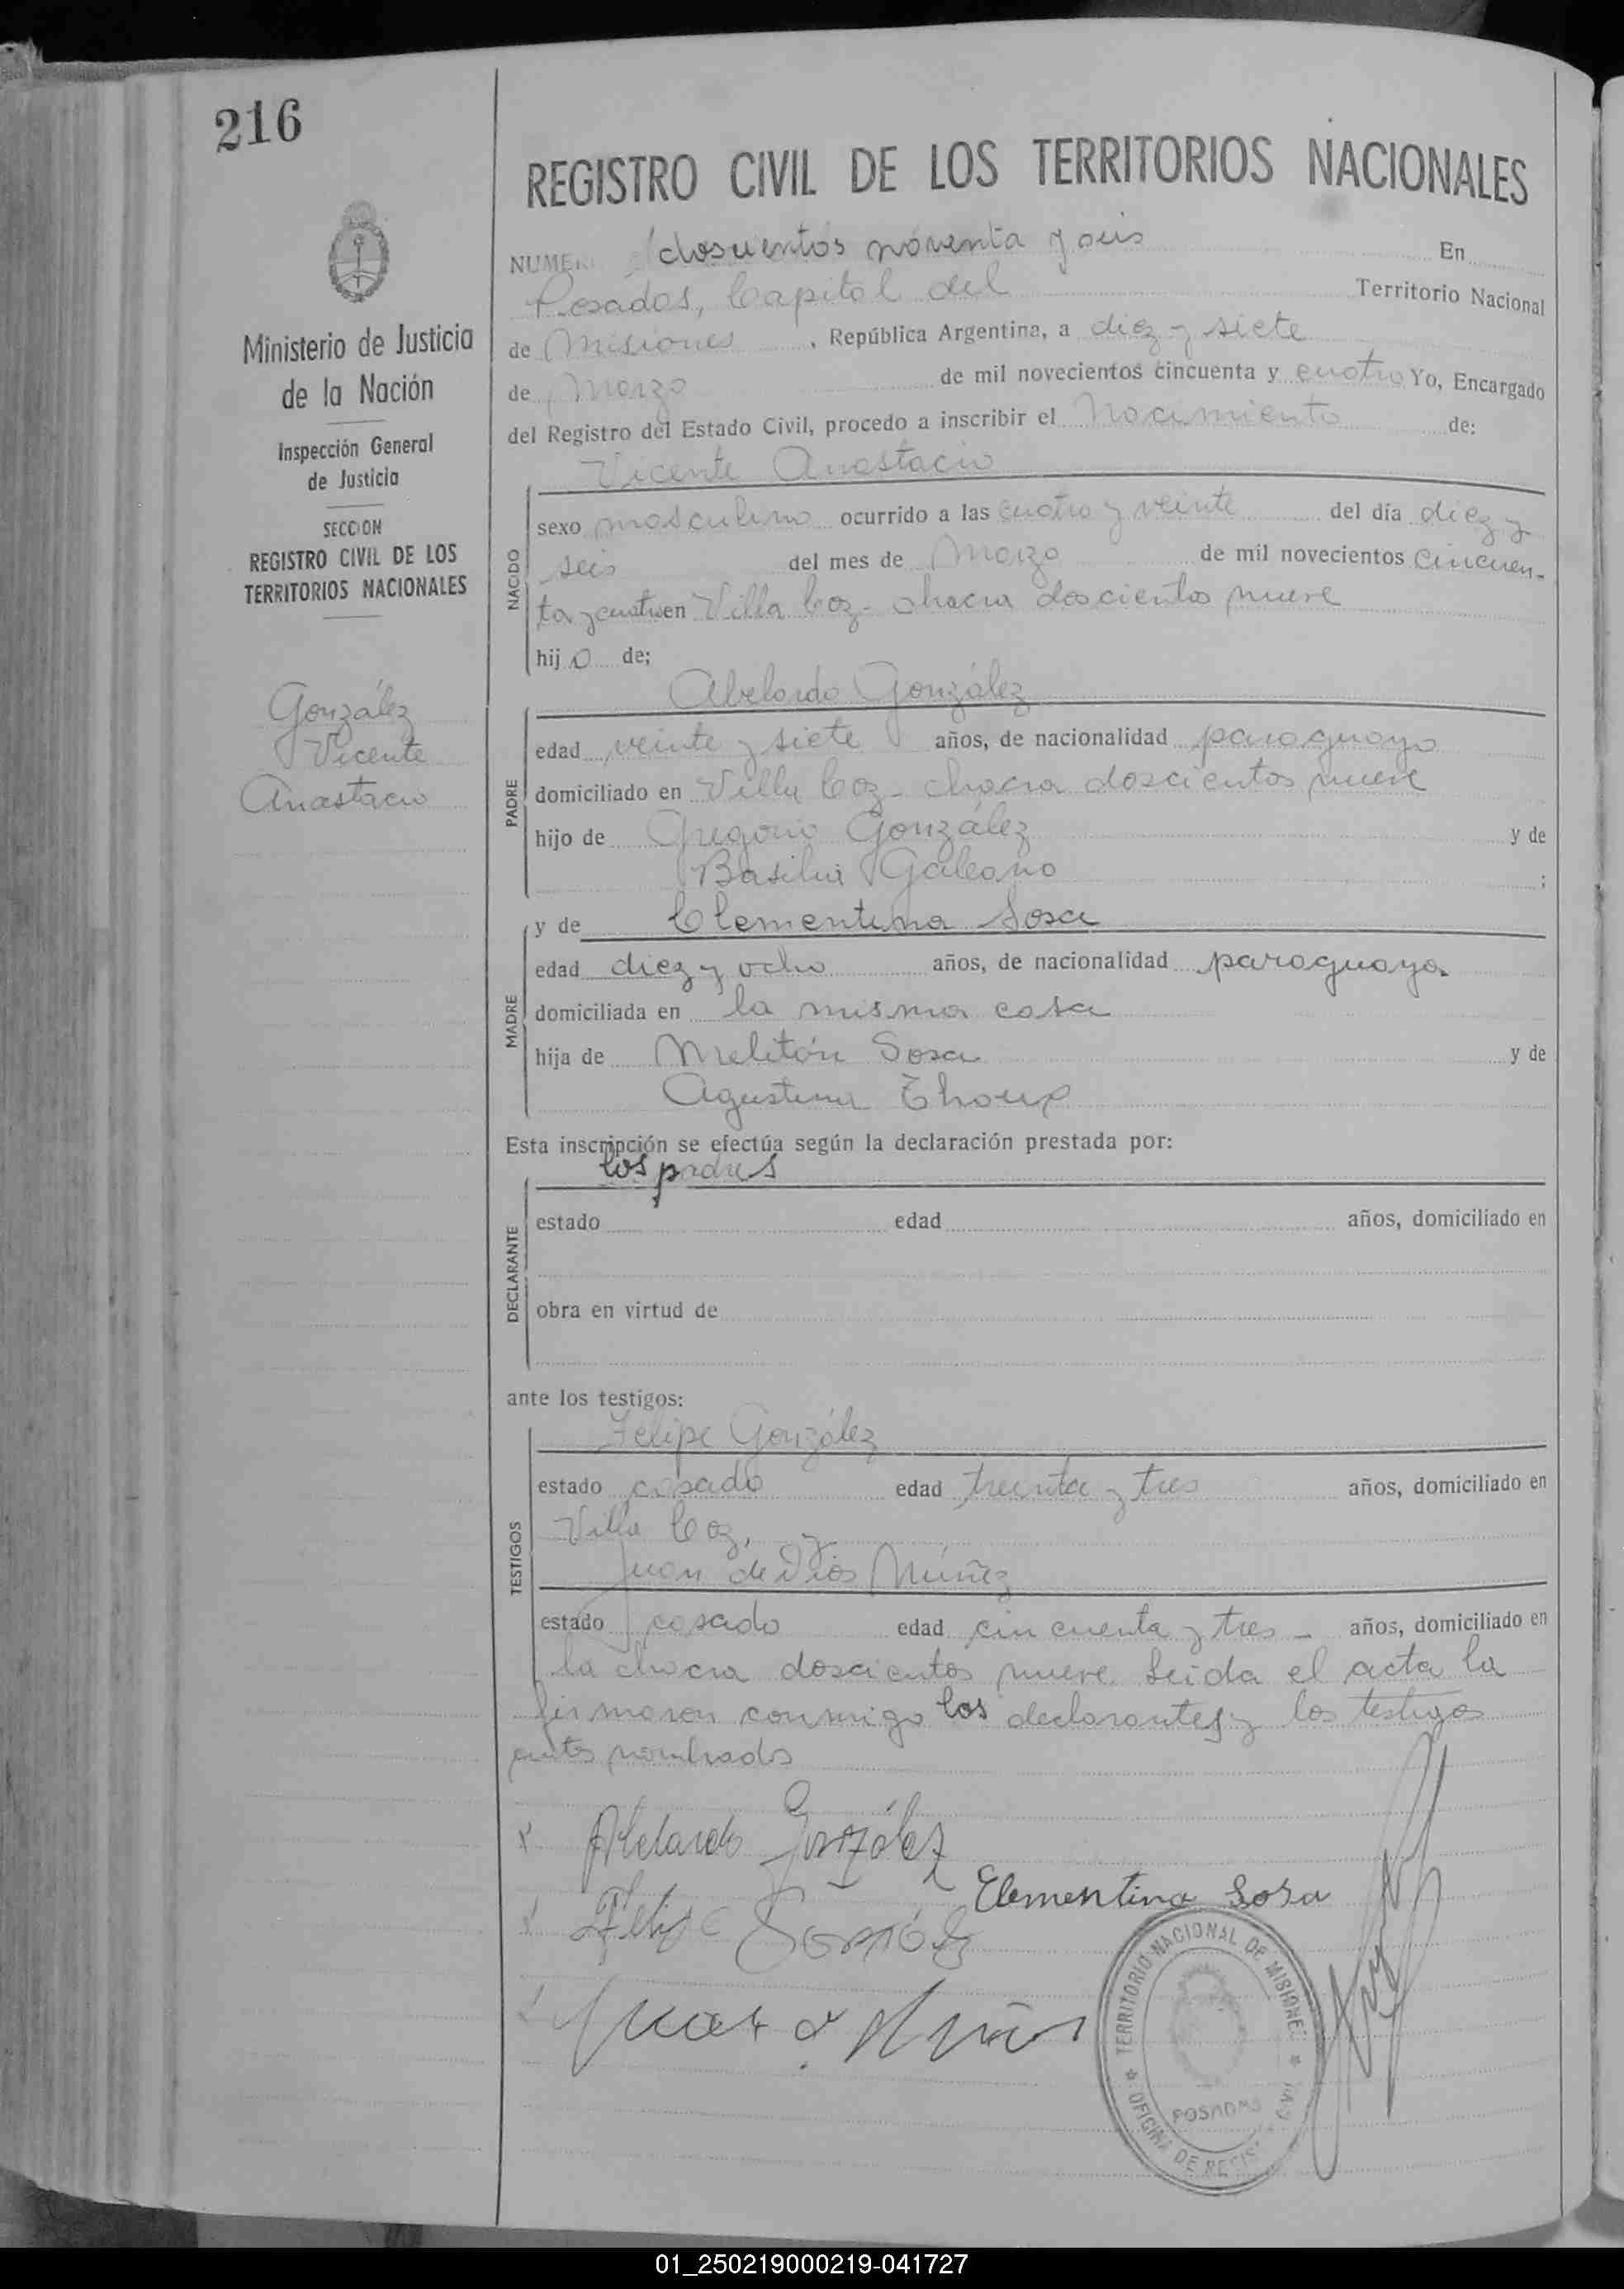 216
REGISTRO CIVIL DE LOS TERRITORIOS NACIONALES
NUMERO doscientos noventa y seis En
Posadas, Capital del Territorio Nacional
de Misiones, República Argentina, a diez y siete
de Marzo de mil novecientos cincuenta y cuatro Yo, Encargado
del Registro del Estado Civil, procedo a inscribir el Nacimiento de:
Vicente Anastacio
NACIDO
sexo masculino ocurrido a las cuatro y veinte del día diez y
seis del mes de Marzo de mil novecientos cincuen-
ta y cuatro en Villa Coz - chacra doscientos nueve
hijo de;
Abelardo González
PADRE
edad veinte y siete años, de nacionalidad paraguayo
domiciliado en Villa Coz - chacra doscientos nueve
hijo de Gregorio González y de
Basilia Galeano ;
MADRE
y de Clementina Sosa
edad diez y ocho años, de nacionalidad paraguaya
domiciliada en la misma casa
hija de Melitón Sosa y de
Agustina
Esta inscripción se efectúa según la declaración prestada por:
los padres
DECLARANTE
estado edad años, domiciliado en
obra en virtud de
ante los testigos:
TESTIGOS
Felipe González
estado casado edad treinta y tres años, domiciliado en
Villa Coz, y
Juan de Dios Núñez
estado casado edad cincuenta y tres - años, domiciliado en
la chacra doscientos nueve. Leida el acta la
firmaron conmigo los declarantes y los testigos
antes nombrados
Abelardo González
Clementina Sosa
Felipe González
Juan d Núñez
TERRITORIO NACIONAL DE MISIONES
POSADAS
OFICINA DE REGIS. CIVIL
Ministerio de Justicia
de la Nación
Inspección General
de Justicia
SECCION
REGISTRO CIVIL DE LOS
TERRITORIOS NACIONALES
González
Vicente
Anastacio
01_250219000219-041727